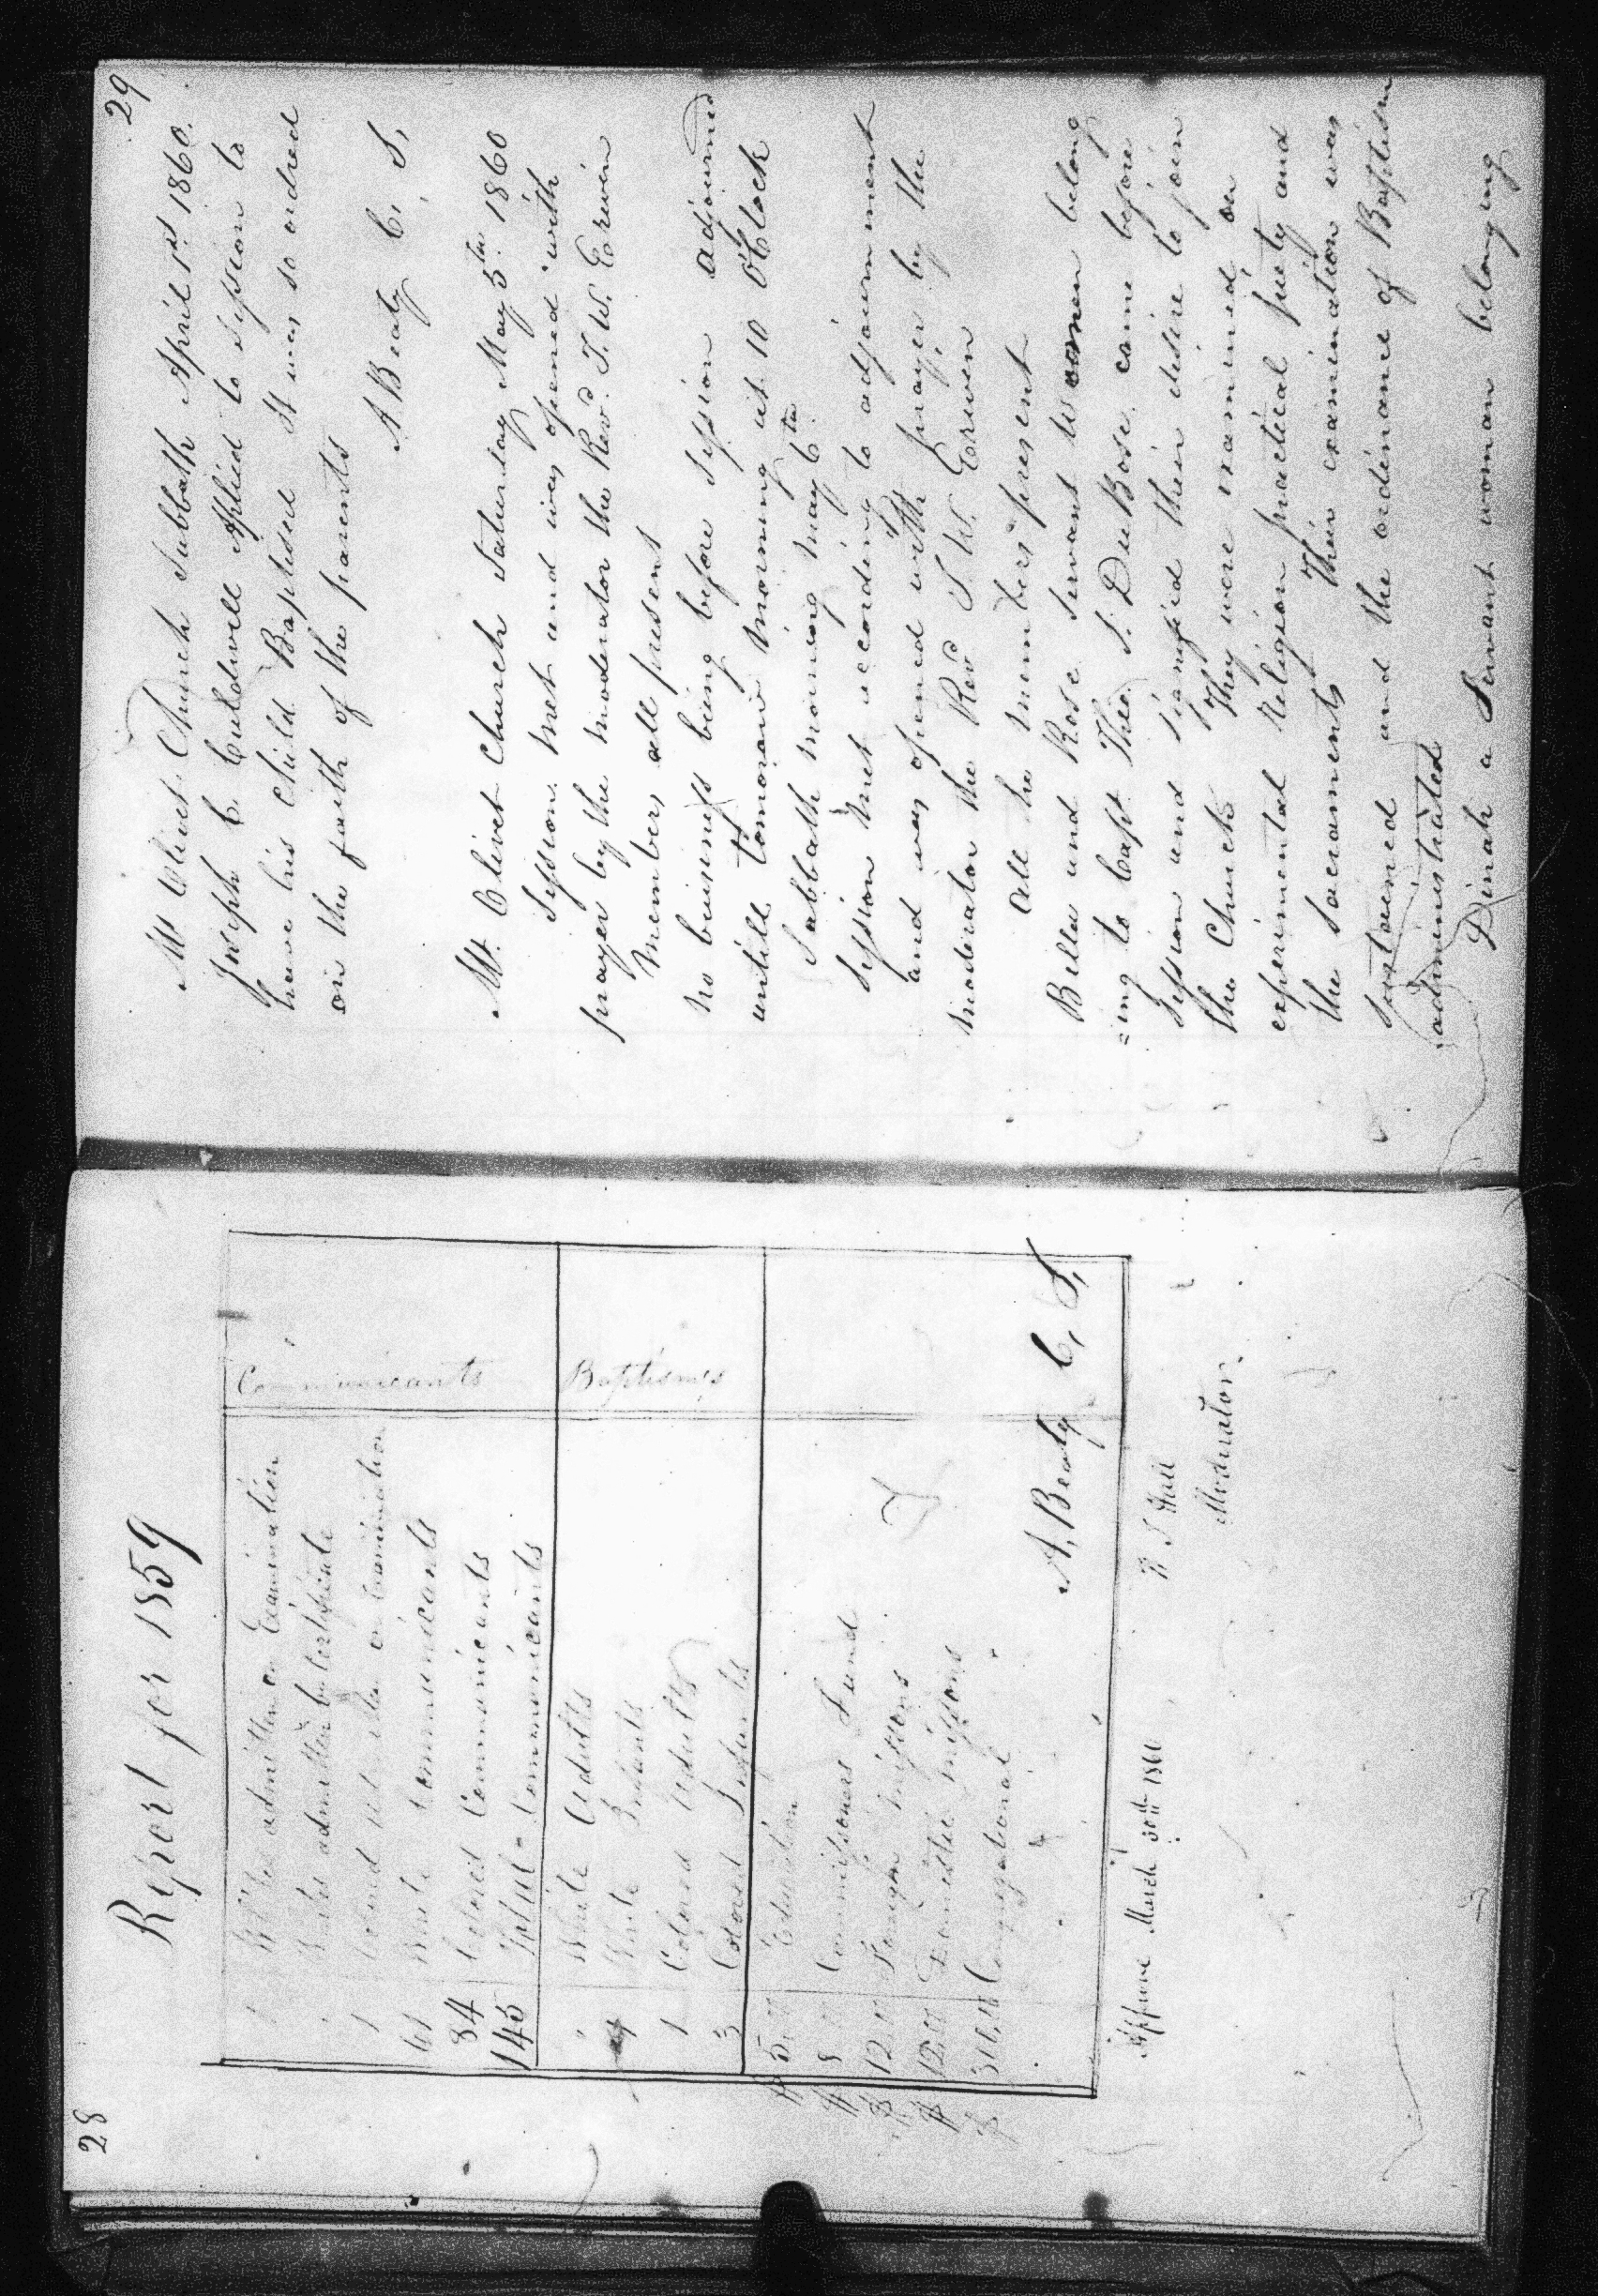 28
Report for 1859
Communicants
Whites admitted on Examination
Whites admitted by certificate
1 Colored admitted on examination
61 White communicants
84 Colored Communicants
145 Total Communicants
Baptisms
White Adults
4 White Infants
1 Colored Adults
3 Colored Infants
$ 5.00 Education
$ 8 Commissioners Fund
$ 12.00 Foreign missions
$ 12.00 Domestic missions
$ Congregational
A. Beaty C, S,
Approved March 30th 1860
Moderator.
29
Mt Olivet Church Sabbath April 1st 1860.
Joseph C. Culdwell Applied to Session to
have his child Baptised It was so ordred
on the faith of the parents
A. Beaty C, S,
Mt. Olivet Church Saturday May 5th 1860
Session met and was opened with
prayer by the moderator the Revd. T. W. Erwin
Members all present
No business being before Session adjourned
untill tomorrow morning at 10 O'Clock
Sabbath morning may 6th
Session met according to adjournment
and was opened with prayer by the
moderator the Revd T. W. Erwin
all the members present
Bella and Rose servant women belong
=ing to Capt Theo. S. DuBose came before
Session and signified their desire to join
the Church They were examined on
experimental Religion practical piety and
the sacraments Their examination was
sustained and the ordinance of Baptism
administrated
Dinah a Servant woman belonging